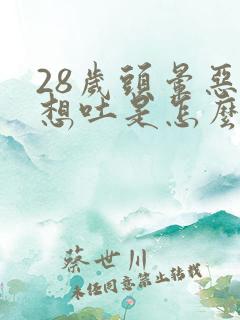 28歲頭暈惡
想吐是怎麼
蔡世川
未經同意禁止轉載